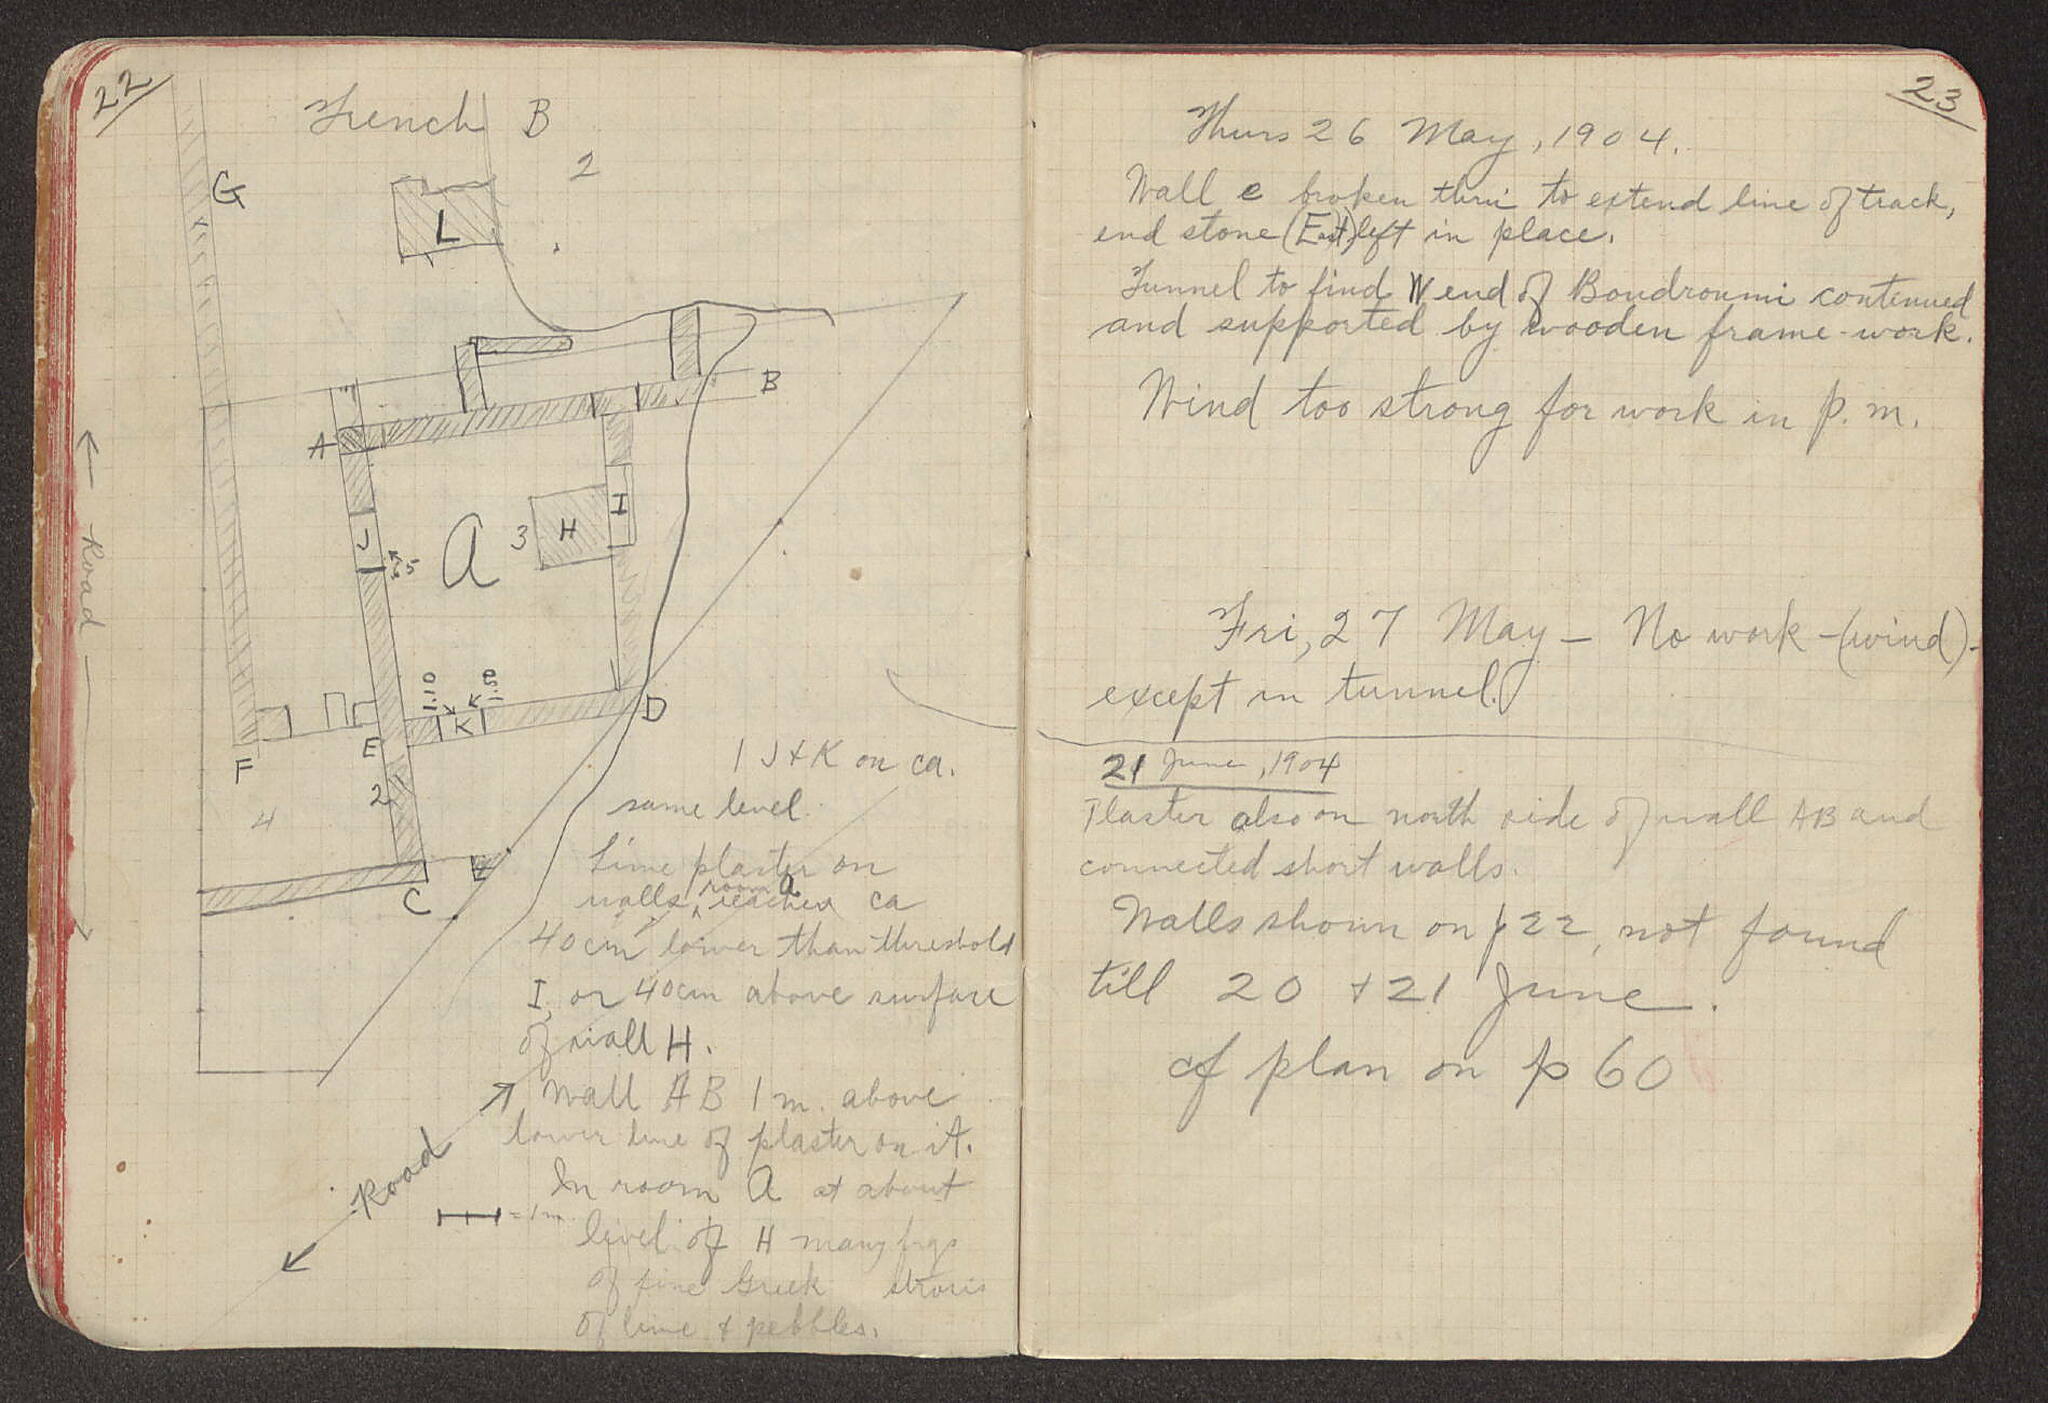 22
Trench B
2
G
L
B
A
I
H
3
J
a
D
K
E
F
2
4
C
← Road →
I J & K on ca.
same level.
Lime plaster on
walls, room a reaches ca
40cm lower than threshold
I, or 40cm above surface
of wall H.
Wall AB 1 m. above
lower line of plaster on it.
In room a at about
= 1m
level of H many frgs
of fine Greek
of lime & pebbles.
Road
23
Thurs 26 May, 1904.
Wall e broken thru to extend line of track,
end stone (East) left in place.
Tunnel to find W end of Boudroumi continued
and supported by wooden frame-work.
Wind too strong for work in p.m.
Fri, 27 May - No work - (wind) -
except in tunnel.
21 June, 1904
Plaster also on north side of wall AB and
connected short walls.
Walls shown on p 22, not found
till 20 + 21 June.
cf plan on p 60